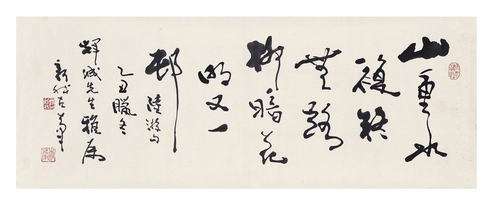 山重水
複疑
無路
柳暗花
明又一
邨
陸游句
乙丑臘冬
輝成先生雅屬